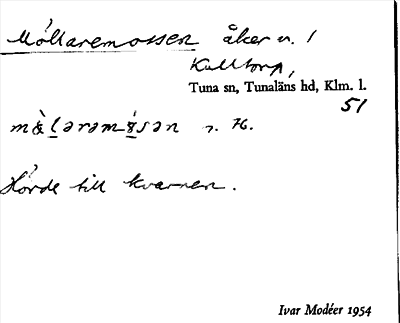 Möllaremossen åker n. 1
Kulltorp,
Tuna sn, Tunaläns hd, Klm. l.
51
Hörde till kvarnen.
Ivar Modéer 1954